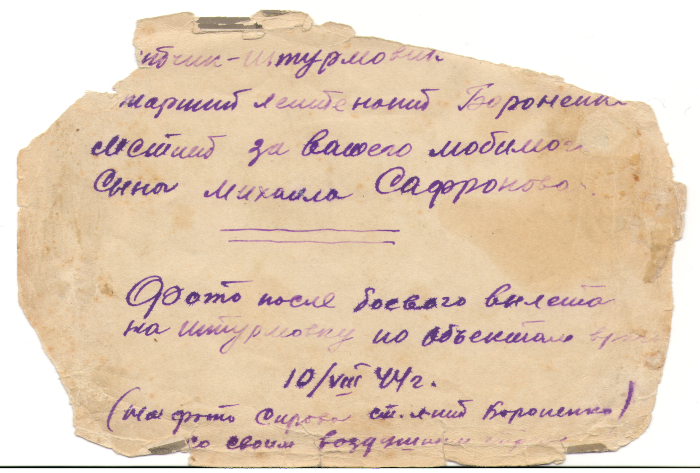 тчик-штурмовик
тарший лейтенант Бороненк
мстит за вашего любимог
Сына Михаила Сафронова
Фото после боевого вылета
на штурмовку по объектам вра
10/VIII 44 г.
(на фото справа ст. л-нт Бороненко)
со своим воздушным